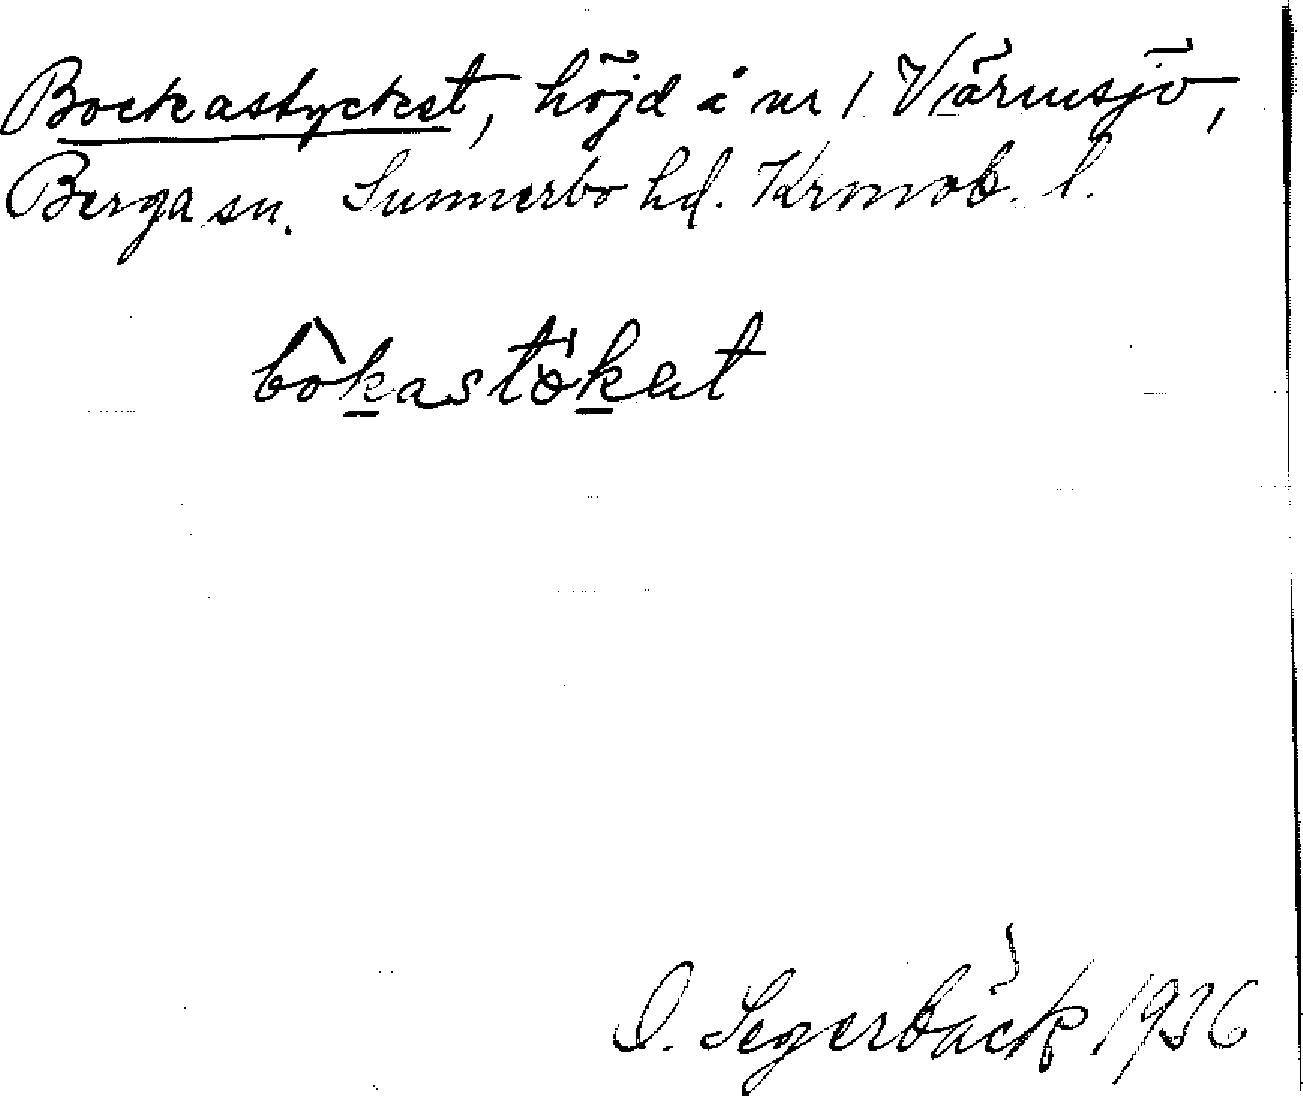 Bockastycket, höjd å nr 1 Värnsjö,
Berga sn. Sunnerbo hd. Kronob. l.
bòkastökat
O. Segerbäck 1936